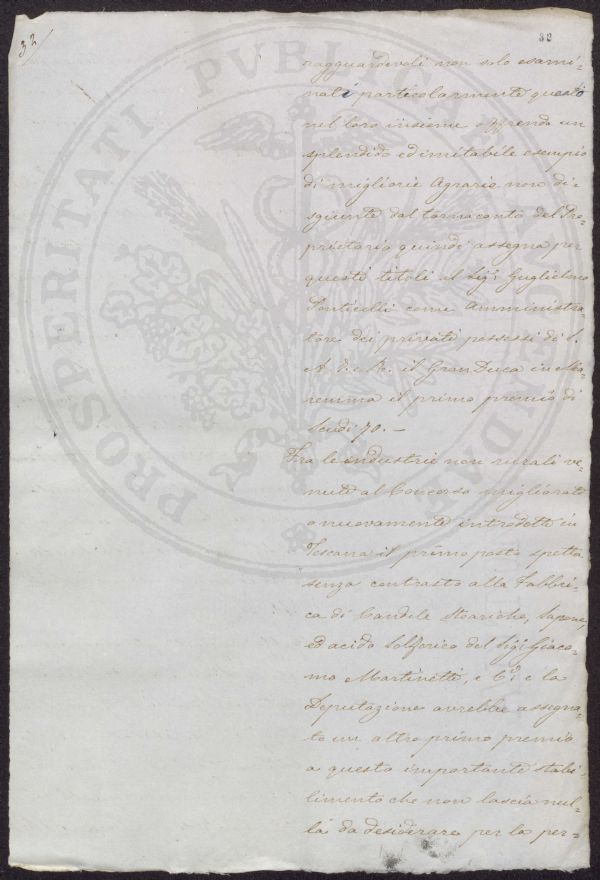 32
32
PROSPERITATI PVBLICAE AVGENDAE
ragguardevoli non solo esami-
nati particolarmente quanto
nel loro insieme offrendo un
splendido ed imitabile esempio
di migliorie Agrarie non di-
sgiunte dal tornaconto del Pro-
prietario quindi assegna per
questi titoli al Sigr. Guglielmo
Ponticelli come Amministra-
tore dei privati possessi di S.
A. I. e R. il GranDuca in Ma-
remma il primo premio di
Scudi 70. —
Fra le industrie non rurali ve-
nute al Concorso migliorate
o nuovamente introdotte in
Toscana il primo posto spetta
senza contrasto alla Fabbri-
ca di Candele Steariche, Sapone,
ed acido Solforico del Sigr. Giaco-
mo Martinetti, e Ci. e la
Deputazione avrebbe assegna-
to un altro primo premio
a questo importante stabi-
limento che non lascia nul-
la da desiderare per la per-